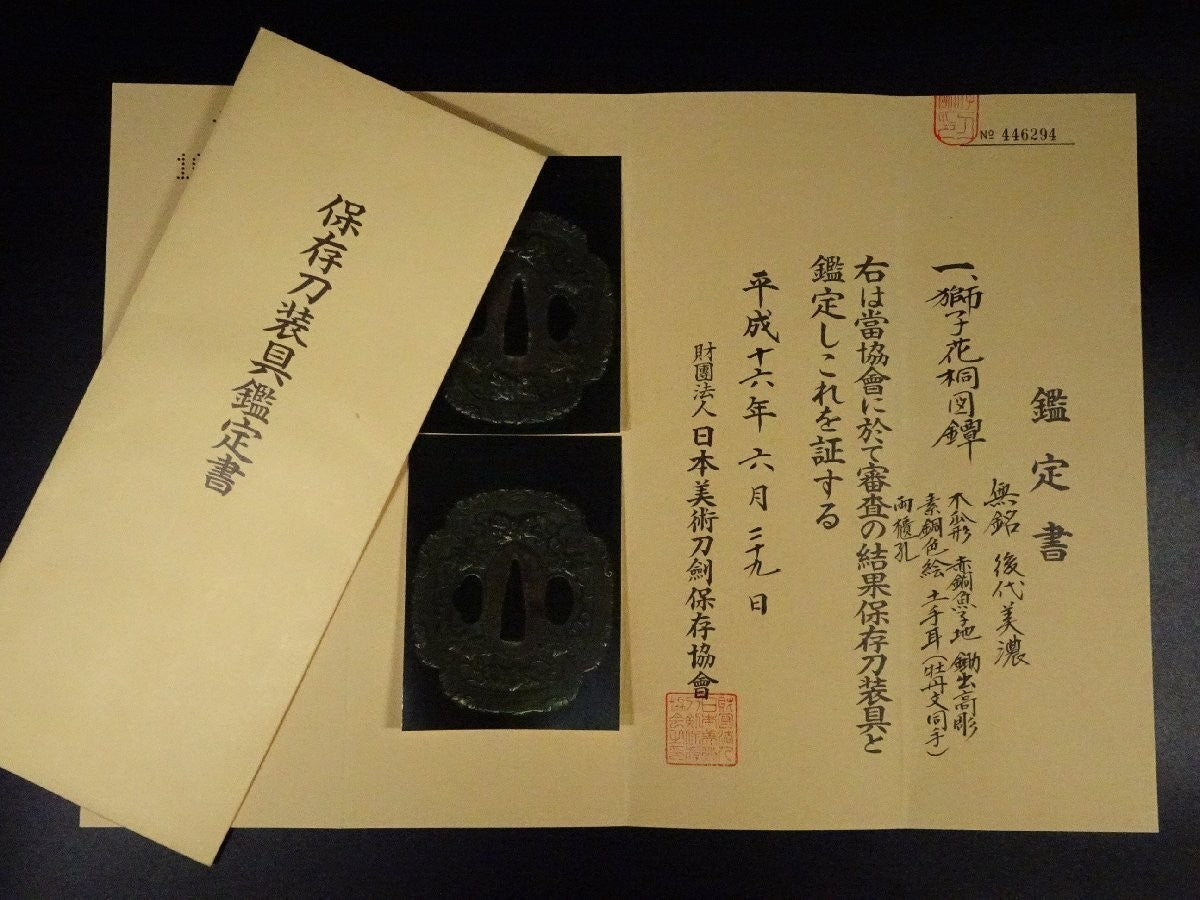 保存刀装具鑑定書
№ 446294
鑑定書
一、獅子花桐図鐔
無銘 後代美濃
木瓜形 赤銅魚子地 鋤出高彫
素銅色絵 土手耳(牡丹文同手)
両櫃孔
右は當協會に於て審査の結果保存刀装具と
鑑定しこれを証する
平成十六年六月二十九日
財團法人 日本美術刀劍保存協會